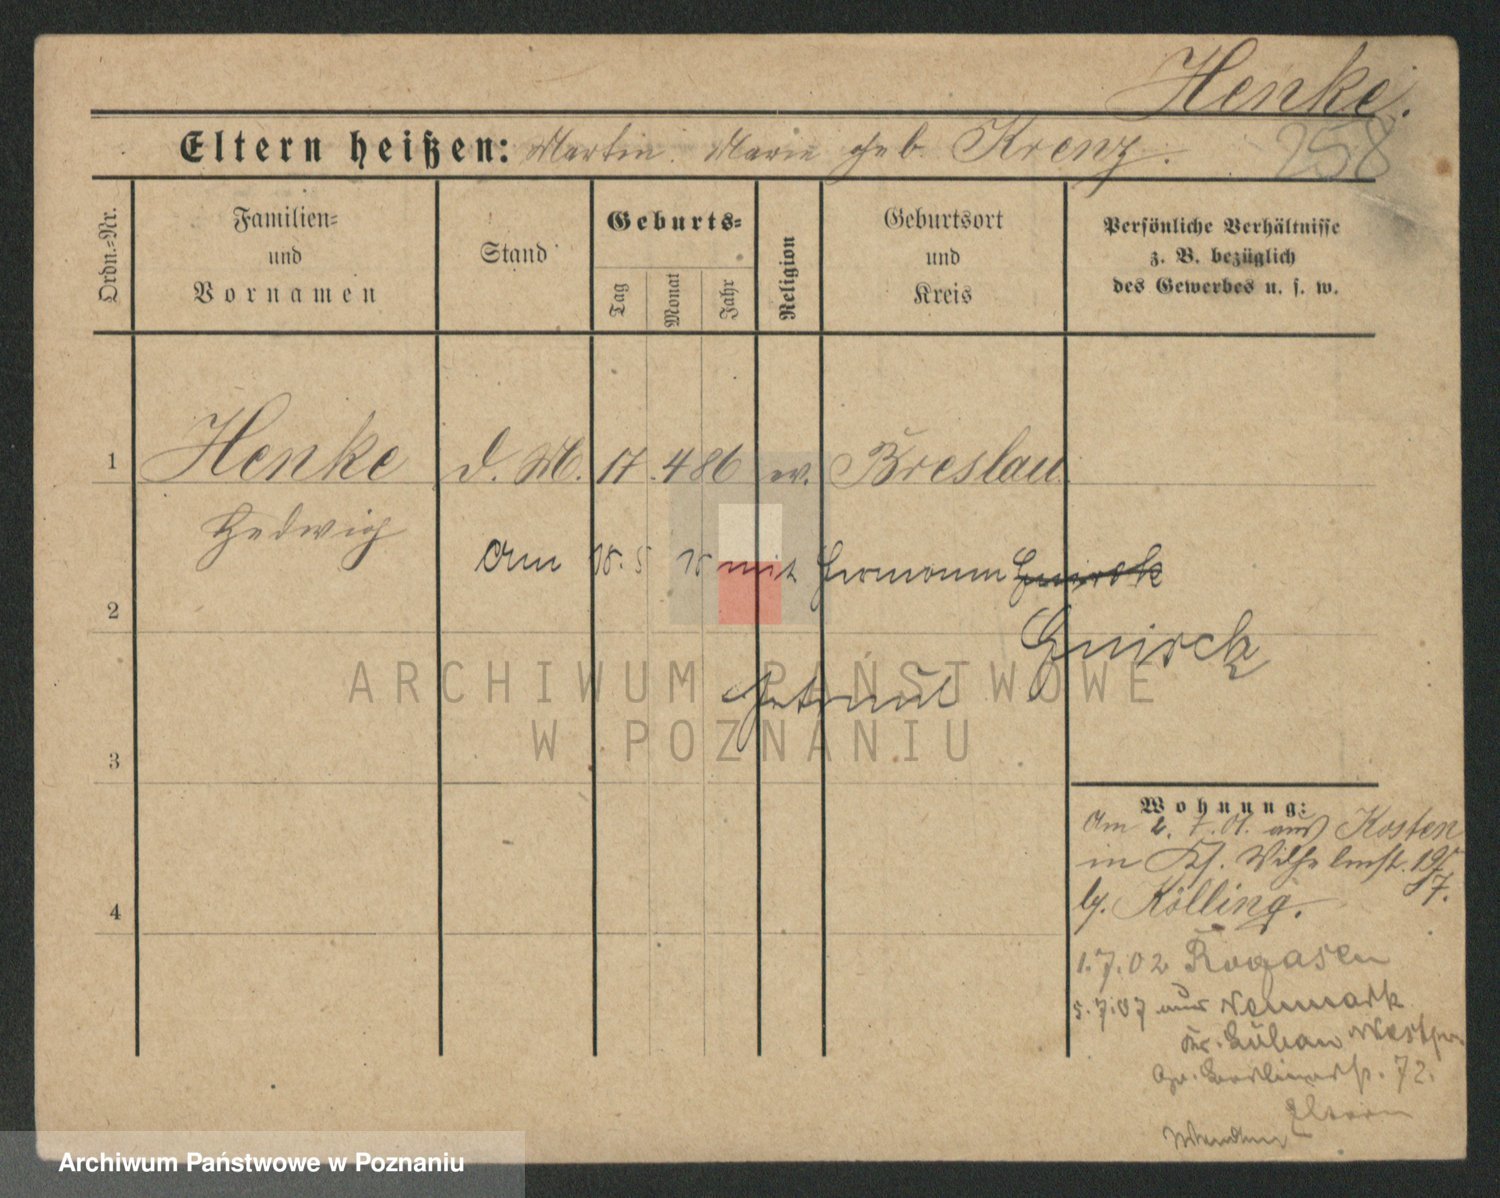 Henke.
258
Eltern heißen: Martin. Marie geb. Krenz.
Ordn.=Nr.
Familien=
und
Vornamen
Stand
Geburts=
Tag
Monat
Jahr
Religion
Geburtsort
und
Kreis
Persönliche Verhältnisse
z. B. bezüglich
des Gewerbes u. s. w.
1 Henke d. M. 17. 4 86 ev. Breslau
Hedwig
Am 18. 5 18 mit Hermann
2
ARCHIWUM PAŃSTWOWE
W POZNANIU
3
Wohnung:
Am 2. 7. 01. aus Kosten
in Wilhelmst.
17.
b/. Kölling.
4
1.7.02 Rogasen
5.7.07 aus Neumark
Kr. Löbau Westpr.
Gr. Berlinerstr. 72.
Eltern
Archiwum Państwowe w Poznaniu